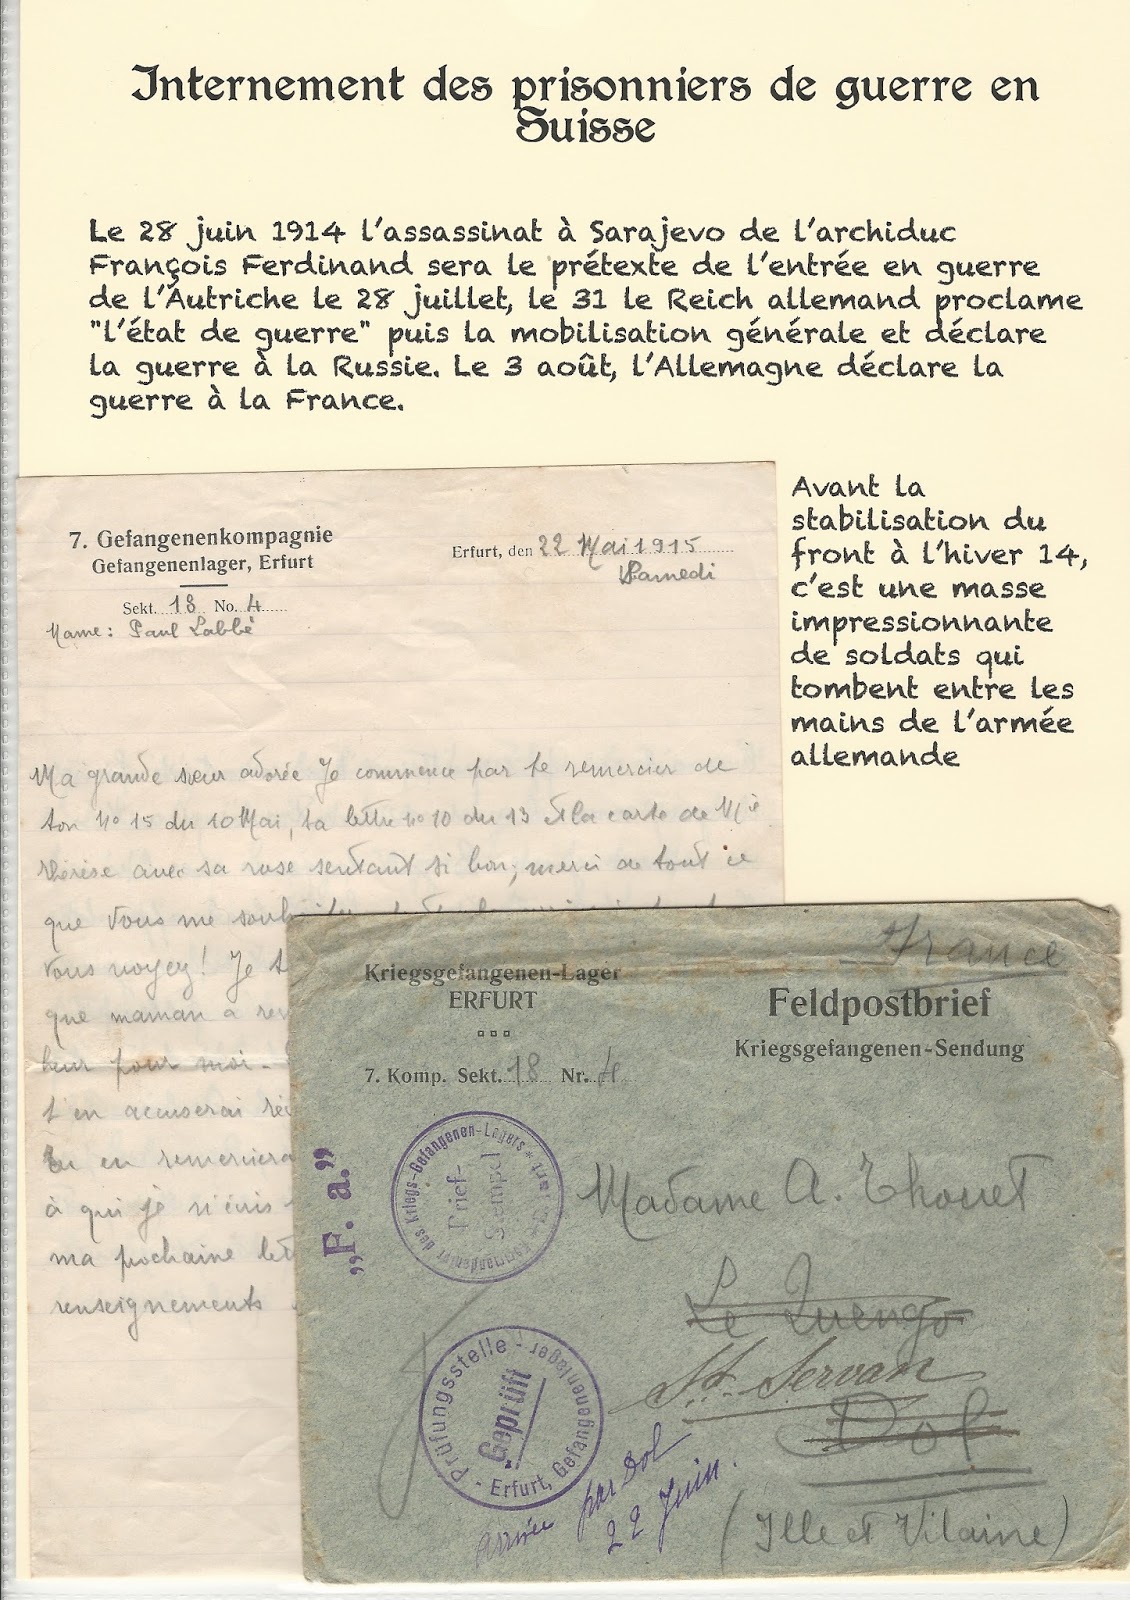 Internement des prisonniers de guerre en
Suisse
Le 28 juin 1914 l'assassinat à Sarajevo de l'archiduc
François Ferdinand sera le prétexte de l'entrée en guerre
de l'Autriche le 28 juillet, le 31 le Reich allemand proclame
"l'état de guerre" puis la mobilisation générale et déclare
la guerre à la Russie. Le 3 août, l'Allemagne déclare la
guerre à la France.
Avant la
stabilisation du
front à l'hiver 14,
c'est une masse
impressionnante
de soldats qui
tombent entre les
mains de l'armée
allemande
7. Gefangenenkompagnie
Gefangenenlager, Erfurt
Sekt. 18 No. 4
Name: Paul Labbé
Erfurt, den 22 Mai 1915
Samedi
Ma grande sœur adorée Je commence par te remercier de
ton No 15 du 10 Mai, ta lettre no 10 du 13 et la carte de Mie
Thérèse avec sa rose sentant si bon; merci de tout ce
que vous me
vous voyez! Je
que maman a
pour moi.
t'en accuserai
en
à qui je n'écris
ma prochaine
renseignements
Kriegsgefangenen-Lager
ERFURT
7. Komp. Sekt. 18 Nr. 4
France
Feldpostbrief
Kriegsgefangenen-Sendung
„F. a."
des Kriegs-Gefangenen-Lagers
Brief-
Stempel
Prüfungsstelle - Erfurt, Gefangenenlager -
Geprüft
Madame A. Thouet
Le Quengo
St. Servan
Dol
(Ille et Vilaine)
Arrivée par Dol
22 Juin.